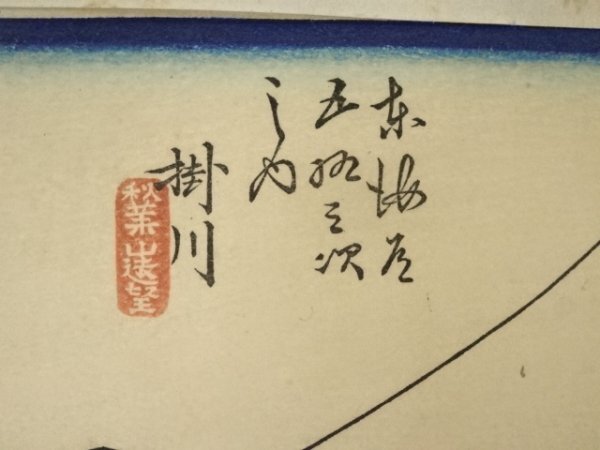 東海道
五拾三次
之内
掛川
秋葉山遠望